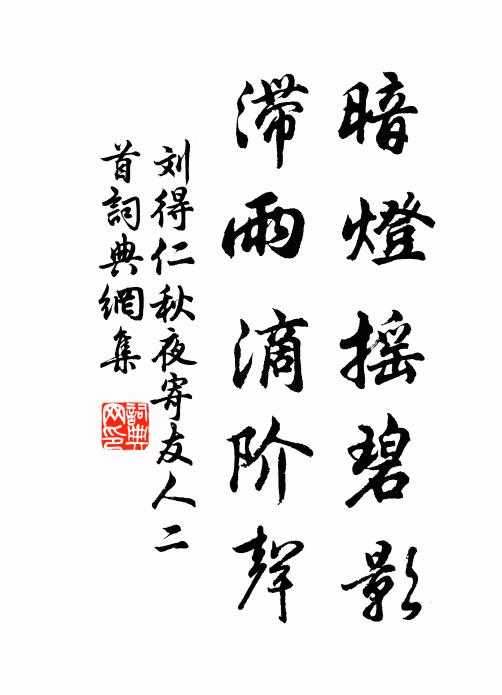 暗燈摇碧影
滞雨滴阶聲
刘得仁秋夜寄友人二
首詞典網集
詞典网印